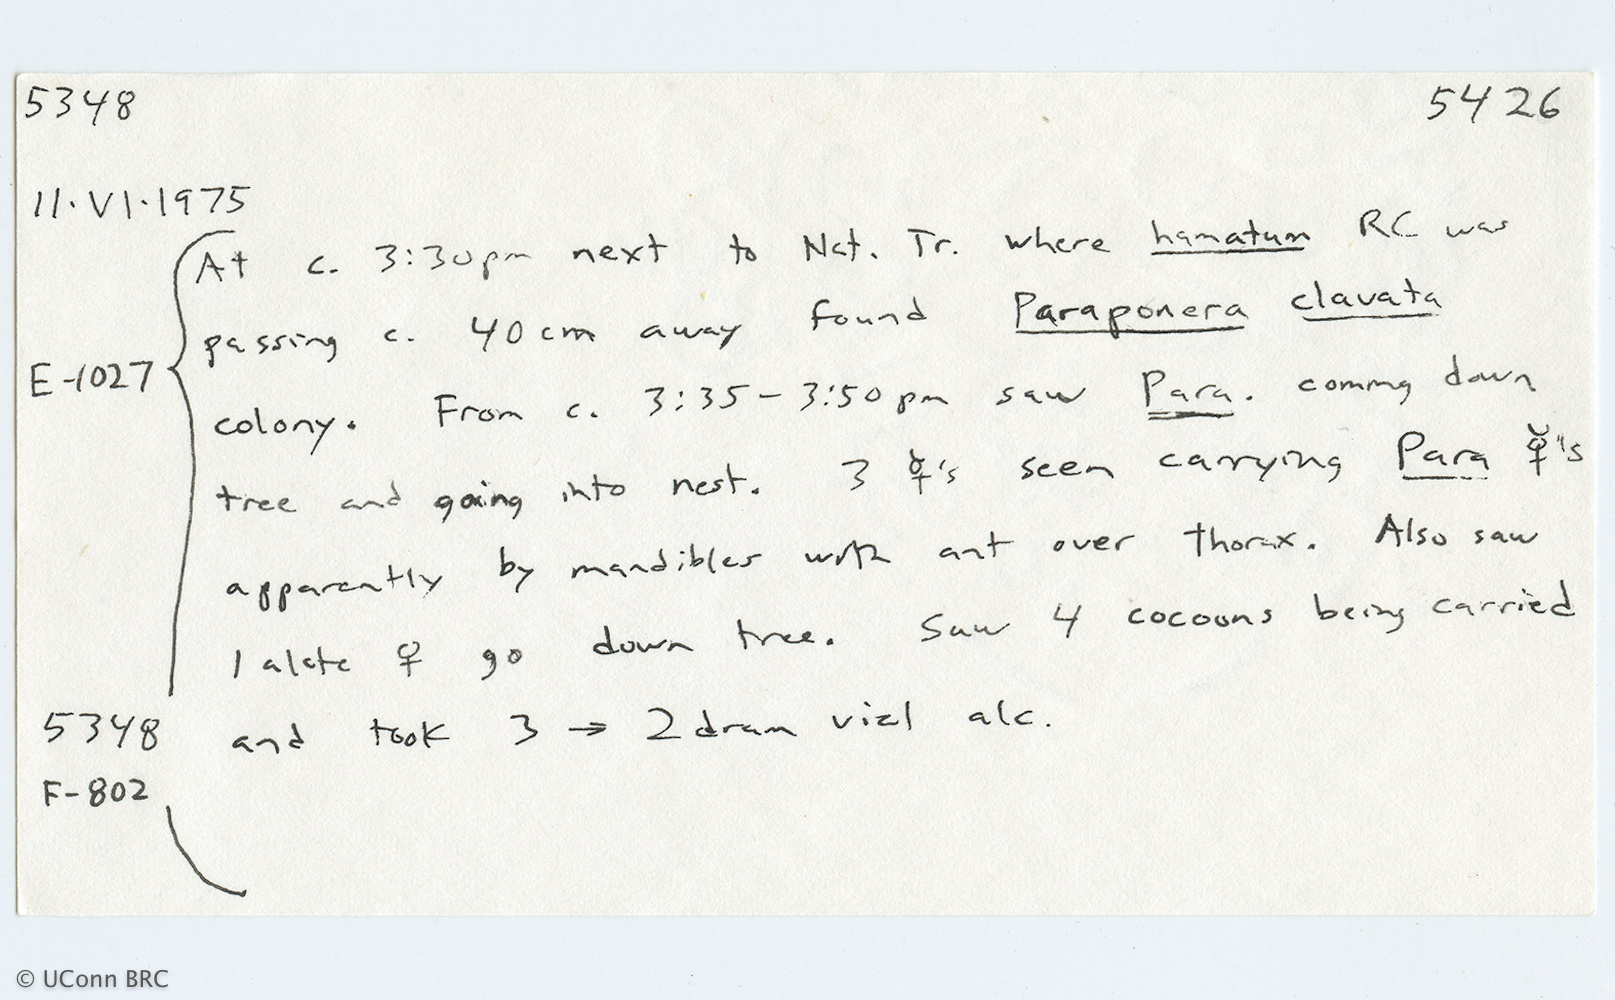 5348 5426
11·VI·1975
At c. 3:30pm next to Nat. Tr. where hamatum RC was
passing c. 40cm away found Paraponera clavata
E-1027
colony. From c. 3:35-3:50pm saw Para. coming down
tree and going into nest. 3 ☿'s seen carrying Para ☿'s
apparently by mandibles with ant over thorax. Also saw
1 alate ♀ go down tree. Saw 4 cocoons being carried
5348 and took 3 → 2 dram vial alc.
F-802
© UConn BRC